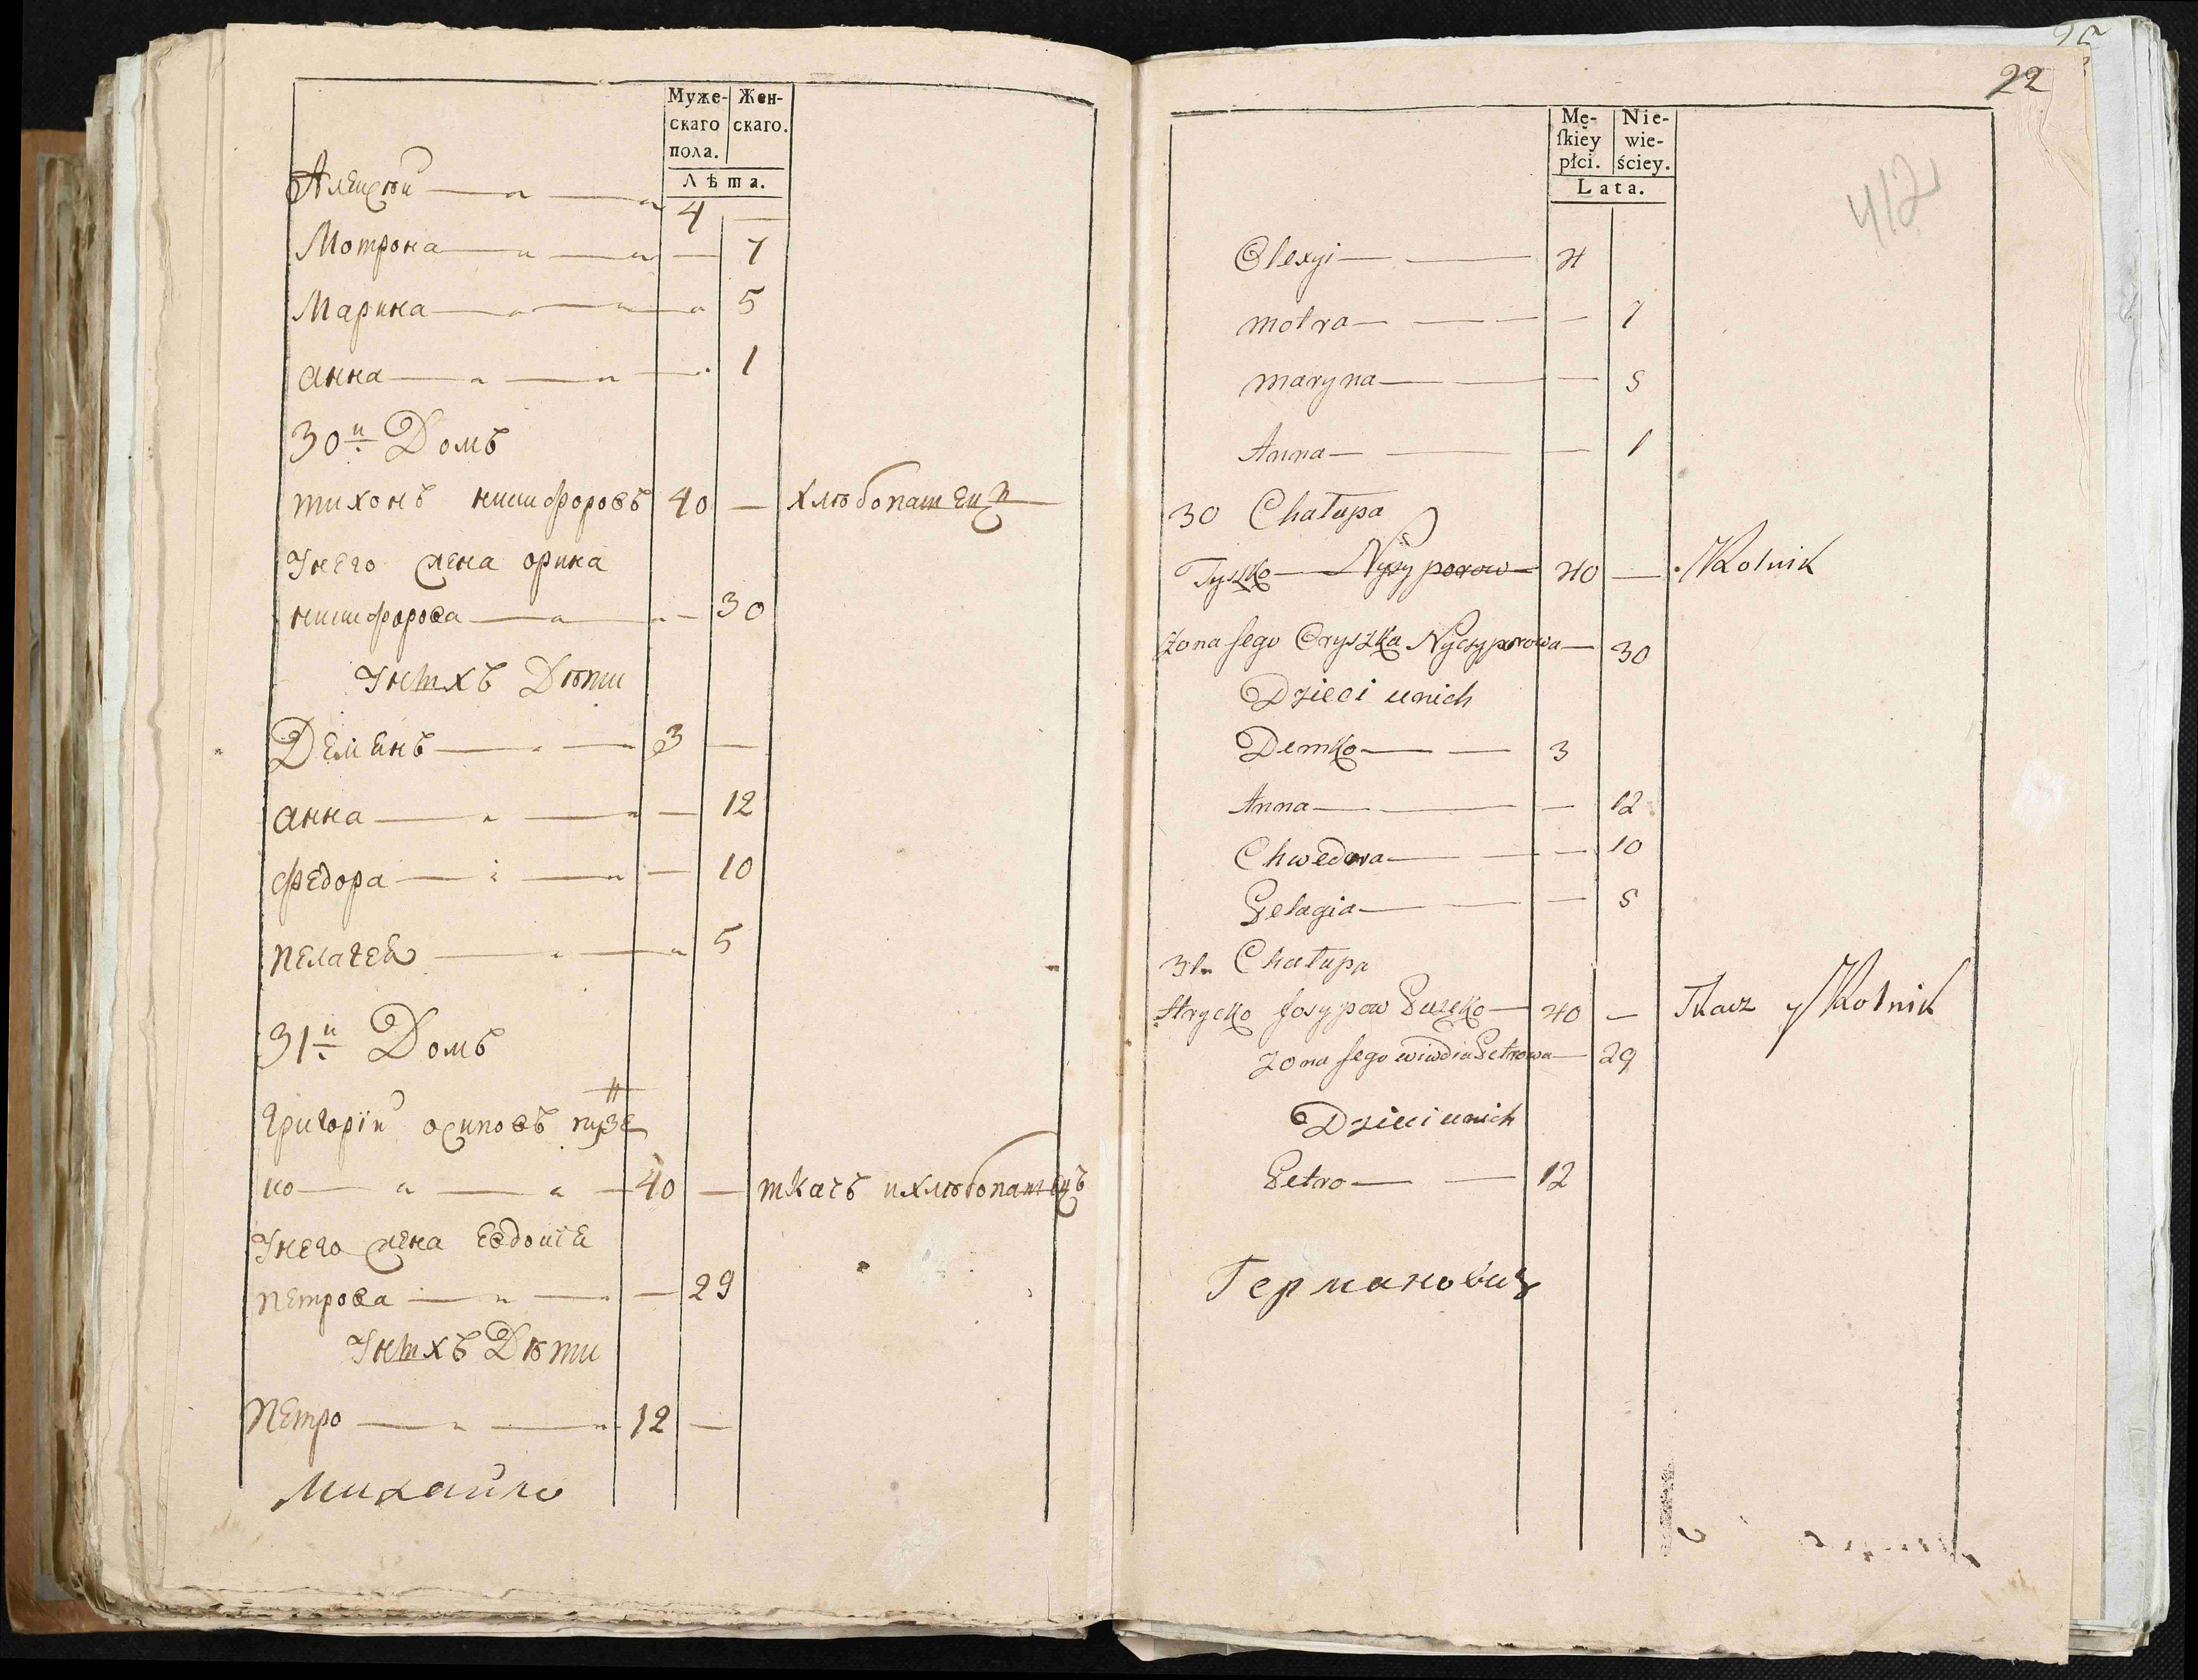 Муже- Жен-
скаго скаго.
пола.
Лѣта.
Алексѣй 4 —
Мотрона — 7
Марина 5
анна — 1
30й Домъ
тихонъ никифоровъ 40 — хлѣбопашец
Унего жена орина
никифорова — 30
Унихъ Дѣти
Демянъ 3 —
анна — 12
федора — 10
пелагея 5
31й Домъ
григорїй осиповъ пузе
ко 40 — ткачъ ихлѣбопашецъ
Унего жена Евдокїя
петрова — 29
Унихъ Дѣти
петро 12 —
Михайло
22
412
Mę- Nie-
ſkiey wie-
płci. ściey.
Lata.
Olexyi 4
motra — 7
maryna — 5
Anna — 1
30 Chałupa
Tyszko Nyczyporow 40 — Rolnik
Zona jego Oryszka Nyczyporowa 30
Dzieci unich
Demko 3
Anna — 12
Chwedora — 10
Pelagia — 5
31 Chałupa
Hrycko Josypow Puzeko 40 — Tkacz y Rolnik
Zona jego Petrowa 29
Dzieci unich
Petro 12
Германович